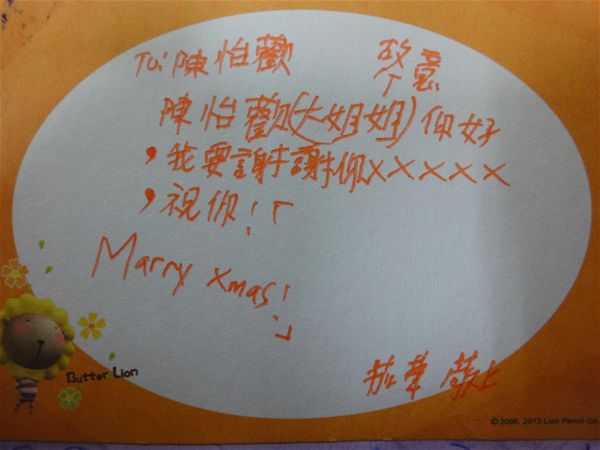 To: 陳怡歡
陳怡歡(大姐姐)你好
,我要謝謝你XXXXX
,祝你!「
Marry Xmas!
」
華 敬上
Butter Lion
© 2006, 2013 Lion Pencil Co